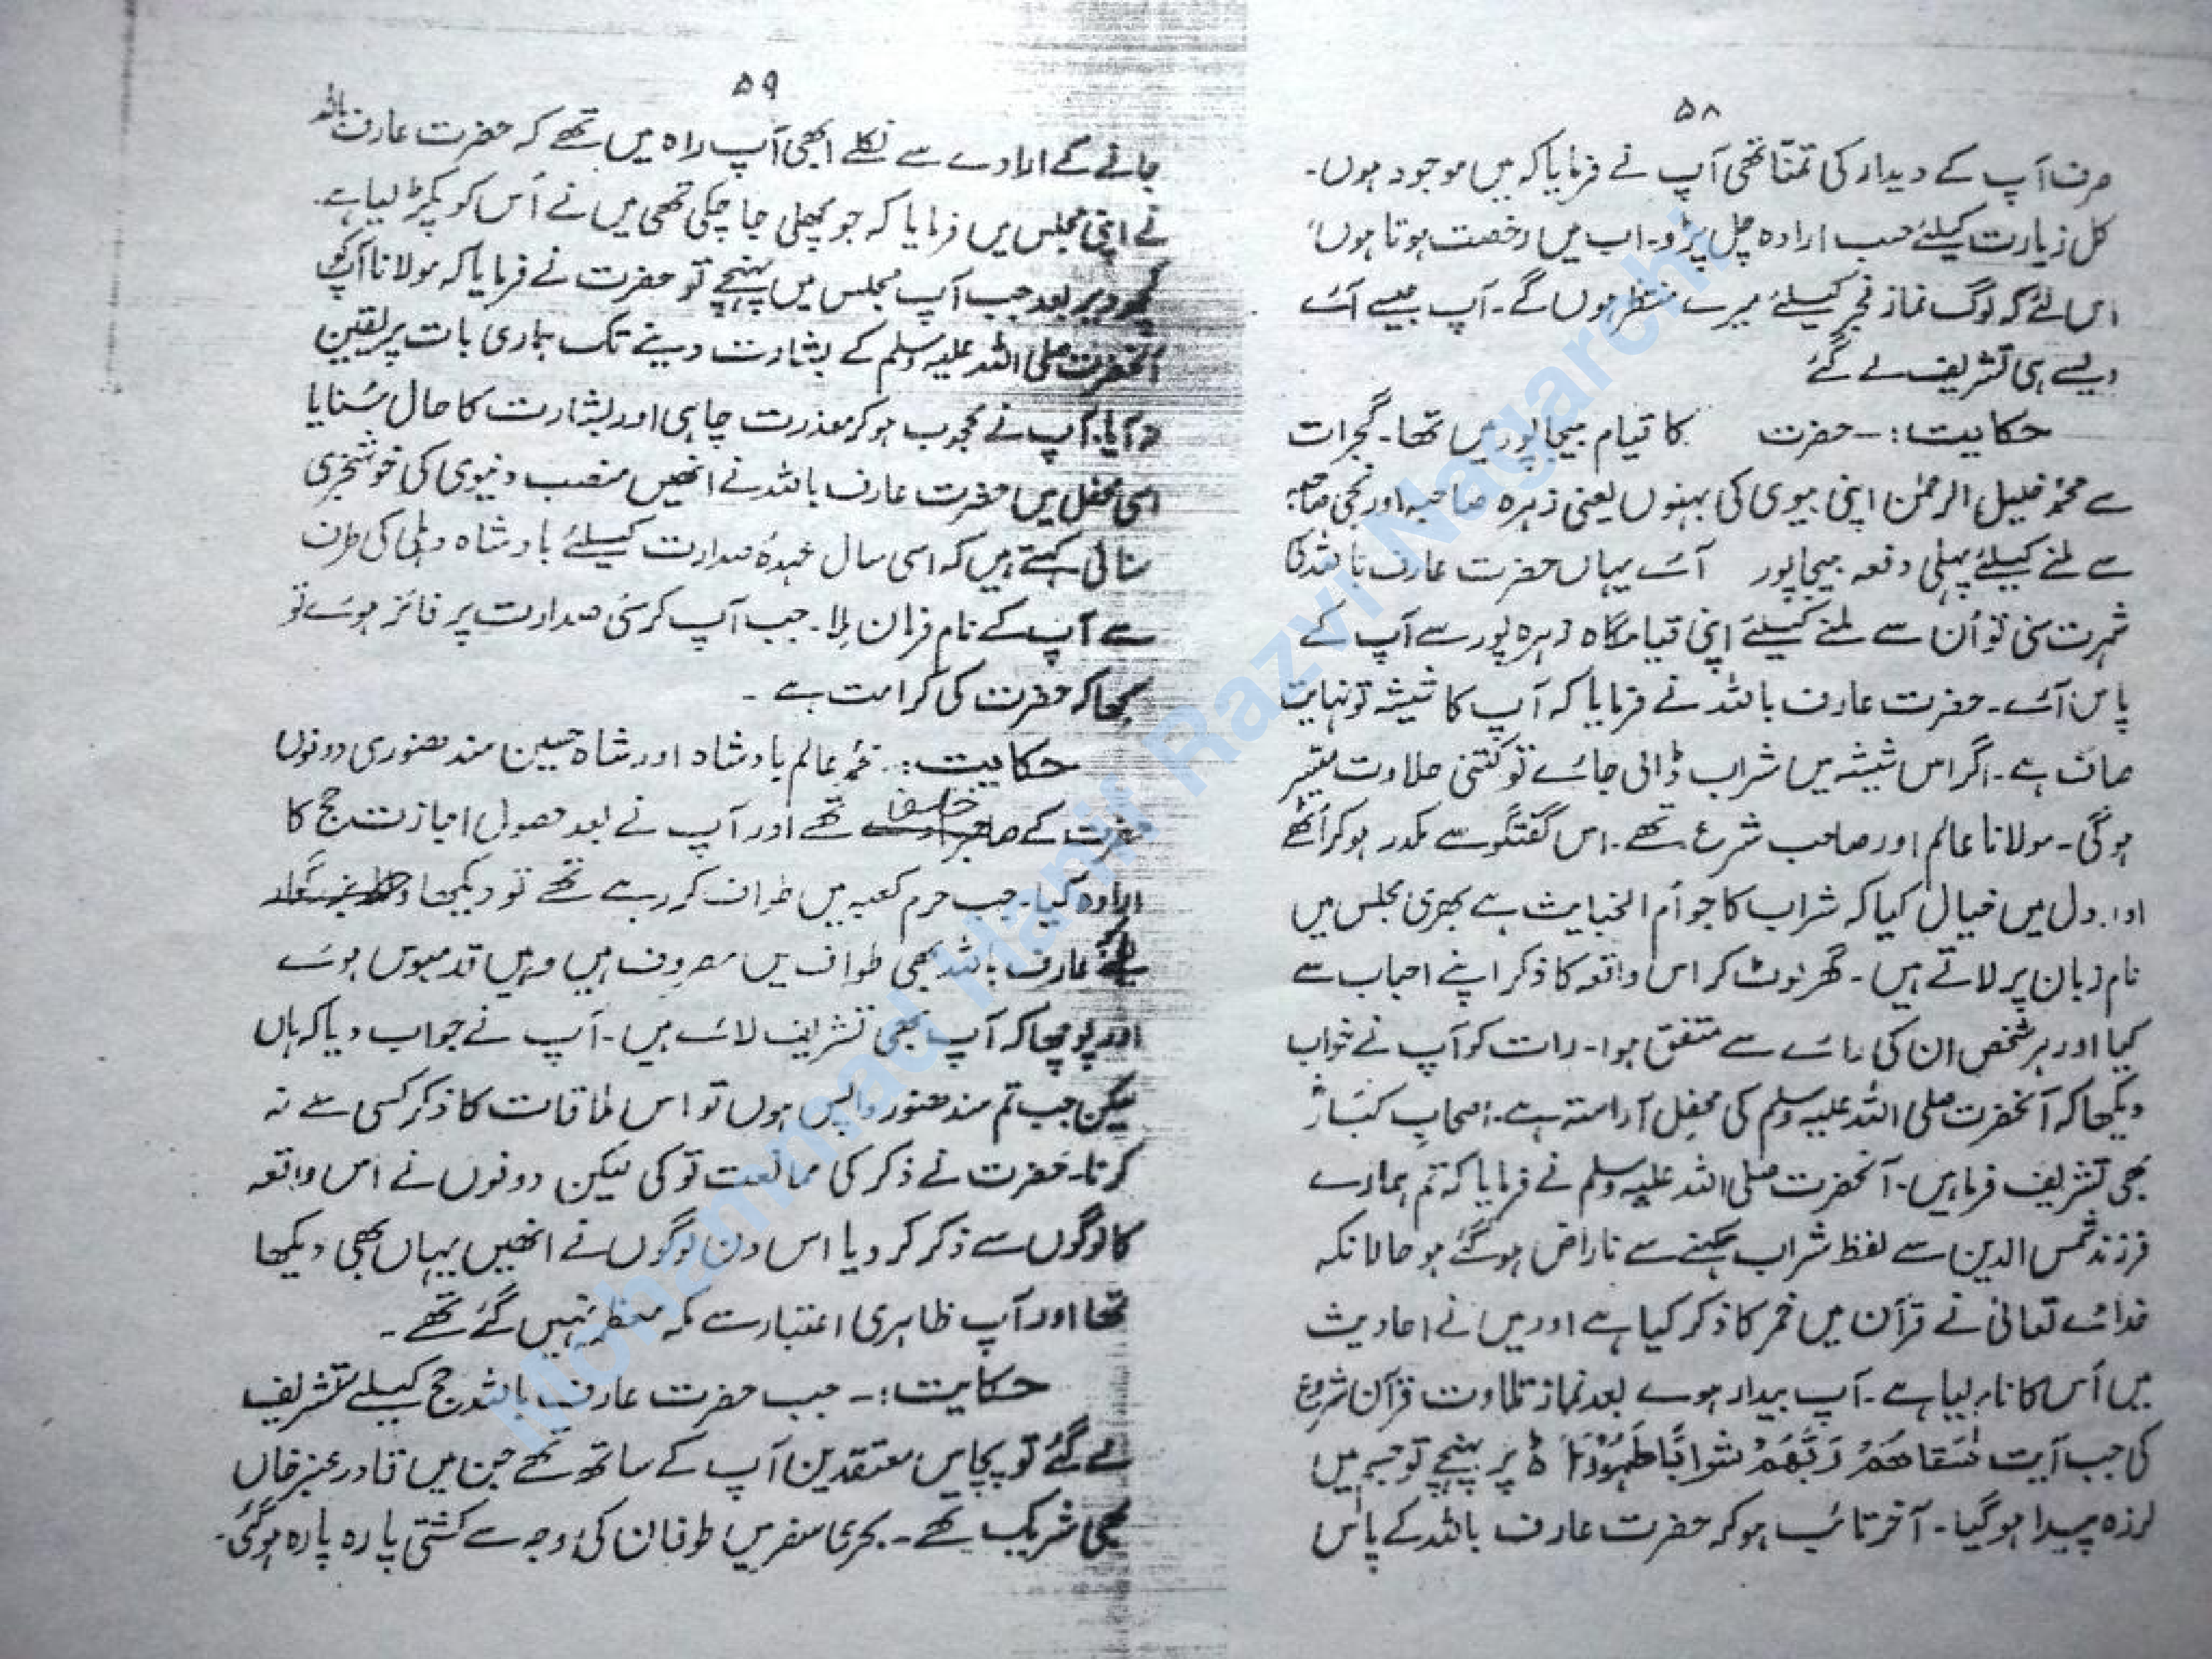 ۵۸
صرف آپ کے دیدار کی تمنّا تھی آپ نے فرمایا کہ میں موجود ہوں۔
کل زیارت کیلئے حسب ارادہ چل پڑو۔ اب میں رخصت ہوتا ہوں،
اس لئے کہ لوگ نماز فجر کیلئے میرے منتظر ہوں گے۔ آپ جیسے آئے
ویسے ہی تشریف لے گئے
حکایت:۔ حضرت کا قیام بیجاپور میں تھا۔ گجرات
سے محمد خلیل الرحمٰن اپنی بیوی کی بہنوں یعنی زہرہ صاحبہ اور نجی صاحبہ
سے ملنے کیلئے پہلی دفعہ بیجاپور آئے یہاں حضرت عارف باللہ کا
شہرت سنی تو اُن سے ملنے کیلئے اپنی قیام گاہ زہرہ پور سے آپ کے
پاس آئے۔ حضرت عارف باللہ نے فرمایا کہ آپ کا شیشہ تو نہایت
صاف ہے۔ اگر اس شیشہ میں شراب ڈالی جائے تو کتنی حلاوت
ہوگی۔ مولانا عالم اور صاحب شرع تھے۔ اس گفتگو سے مکدر ہو کر اُٹھے
اور دل میں خیال کیا کہ شراب کا جو اُم الخبایث ہے بھری مجلس میں
نام زبان پر لاتے ہیں۔ گھر لوٹ کر اس واقعہ کا ذکر اپنے احباب سے
کیا اور ہر شخص ان کی رائے سے متفق ہوا۔ رات کو آپ نے خواب
دیکھا کہ آنحضرت صلی اللہ علیہ وسلم کی محفل آراستہ ہے۔ اصحابِ کبار
بھی تشریف فرما ہیں۔ آنحضرت صلی اللہ علیہ وسلم نے فرمایا کہ تم ہمارے
فرزند شمس الدین سے لفظ شراب کہنے سے ناراض ہو گئے ہو حالانکہ
خدائے تعالیٰ نے قرآن میں خمر کا ذکر کیا ہے اور میں نے احادیث
میں اُس کا نام لیا ہے۔ آپ بیدار ہوئے بعد نماز تلاوت قرآن شروع
کی جب آیت سَقَاهُمْ رَبُّهُمْ شَرَابًا طَهُوْرًا ہ پر پہنچے تو جسم میں
لرزہ پیدا ہو گیا۔ آخر تائب ہو کر حضرت عارف باللہ کے پاس
۵۹
جانے کے ارادے سے نکلے ابھی آپ راہ میں تھے کہ حضرت عارف باللہ
نے اپنی مجلس میں فرمایا کہ جو مچھلی جا چکی تھی میں نے اُس کو پکڑ لیا ہے۔
کچھ دیر بعد جب آپ مجلس میں پہنچے تو حضرت نے فرمایا کہ مولانا آپ کو
آنحضرت صلی اللہ علیہ وسلم کے بشارت دینے تک ہماری بات پر یقین
نہ آیا۔ آپ نے محجوب ہو کر معذرت چاہی اور بشارت کا حال سُنایا
اسی محفل میں حضرت عارف باللہ نے انھیں منصب دنیوی کی خوشخبری
سنائی کہتے ہیں کہ اسی سال عہدۂ صدارت کیلئے بادشاہ دہلی کی طرف
سے آپ کے نام فرمان ملا۔ جب آپ کرسی صدارت پر فائز ہوئے تو
سمجھا کہ حضرت کی کرامت ہے۔
حکایت:۔ محمد عالم بادشاہ اور شاہ حسین مند صنوری دونوں
حضرت کے خلفا تھے اور آپ نے بعد حصول اجازت حج کا
ارادہ کیا۔ جب حرم کعبہ میں طواف کر رہے تھے تو دیکھا
کہ عارف باللہ بھی طواف میں مصروف ہیں وہیں قدمبوس ہوئے
اور پوچھا کہ آپ بھی تشریف لائے ہیں۔ آپ نے جواب دیا کہ ہاں
لیکن جب تم مند صنور واپس ہوں تو اس ملاقات کا ذکر کسی سے نہ
کرنا۔ حضرت نے ذکر کی ممانعت تو کی لیکن دونوں نے اس واقعہ
کا لوگوں سے ذکر کر دیا اس دن لوگوں نے انھیں یہاں بھی دیکھا
تھا اور آپ ظاہری اعتبار سے مکہ معظمہ نہیں گئے تھے۔
حکایت:۔ جب حضرت عارف باللہ حج کیلئے تشریف
لے گئے تو پچاس معتقدین آپ کے ساتھ تھے جن میں قادر عنبر خاں
بھی شریک تھے۔ بحری سفر میں طوفان کی وجہ سے کشتی پارہ پارہ ہو گئی۔
Mohammad Hanif Razvi Nagarchi